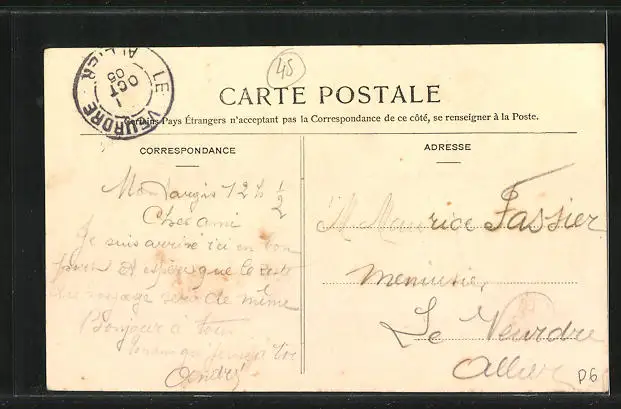 45
LE VEURDRE
ALLIER
1
OCT
05
CARTE POSTALE
Certains Pays Étrangers n'acceptant pas la Correspondance de ce côté, se renseigner à la Poste.
CORRESPONDANCE
Montargis 12h ½
Cher ami
Je suis arrivé ici en bon
port et espère que le reste
du voyage sera de même
Bonjour à tous
André
ADRESSE
M Maurice Fassier
menuisier
Le Veurdre
Allier
P6